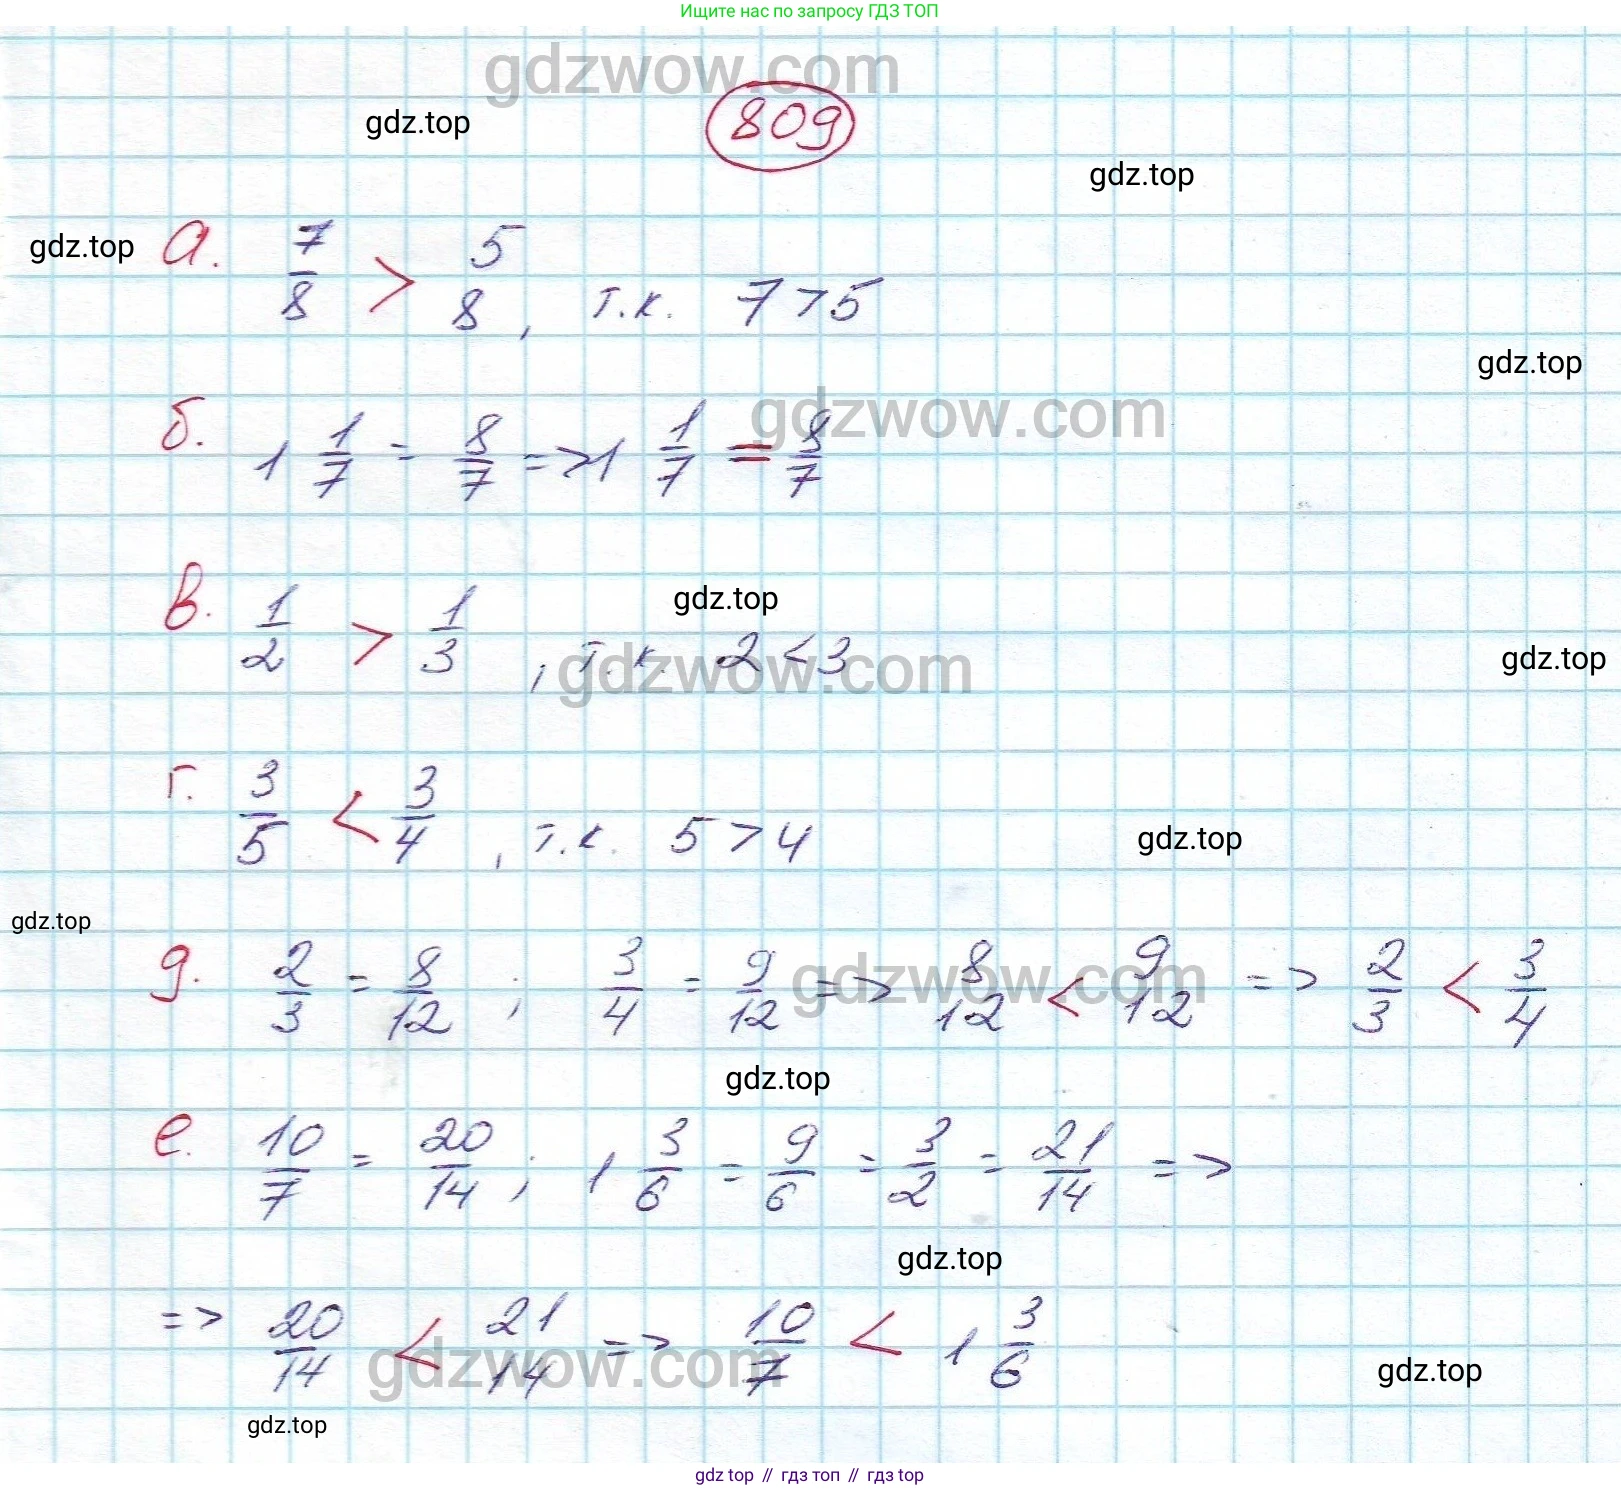 Ищите нас по запросу ГДЗ ТОП
gdzwow.com
809
gdz.top
gdz.top
gdz.top
а. 7/8 > 5/8, т.к. 7 > 5
gdz.top
gdzwow.com
б. 1 1/7 = 8/7 => 1 1/7 = 8/7
gdz.top
в. 1/2 > 1/3, т.к. 2 < 3
gdzwow.com
gdz.top
г. 3/5 < 3/4, т.к. 5 > 4
gdz.top
gdz.top
д. 2/3 = 8/12; 3/4 = 9/12 => 8/12 < 9/12 => 2/3 < 3/4
gdzwow.com
gdz.top
е. 10/7 = 20/14; 1 3/6 = 9/6 = 3/2 = 21/14 =>
gdz.top
=> 20/14 < 21/14 => 10/7 < 1 3/6
gdzwow.com
gdz.top
gdz.top
gdz top // гдз топ // гдз top